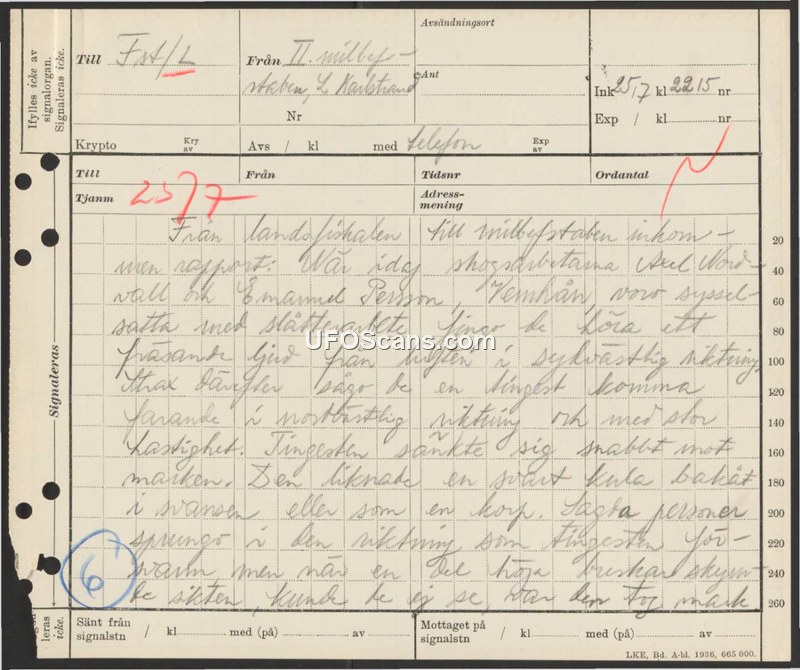 Ifylles icke av
signalorgan.
Signaleras icke.
Till Fst/L
Från II. milbef-
staben, L Karlstrand
Nr
Avsändningsort
Ant
Ink 25/7 kl 2215 nr
Exp / kl nr
Krypto Kry av
Avs / kl med telefon Exp av
Till
Från
Tidsnr
Ordantal
Tjanm 25/7
Adress-
mening
Signaleras
Från landsfiskalen till milbefstaben inkom-
men rapport: När idag skogsarbetarna Axel Nord-
vall och Emanuel Persson, Vemhån, voro syssel-
satta med slåtterarbete fingo de höra ett
fräsande ljud från luften i sydvästlig riktning.
Strax därefter sågo de en tingest komma
farande i nordvästlig riktning och med stor
hastighet. Tingesten sänkte sig snabbt mot
marken. Den liknade en svart kula bakåt
i svansen eller som en korp. Sagda personer
sprungo i den riktning som tingesten för-
svann men när en del höja buskar skym-
de sikten, kunde de ej se, var den tog mark
20
40
60
80
100
120
140
160
180
200
220
240
260
6
UFOScans.com
leras
icke.
Sänt från
signalstn / kl med (på) av
Mottaget på
signalstn / kl med (på) av
LKE, Bd. A-bl. 1936, 665 000.